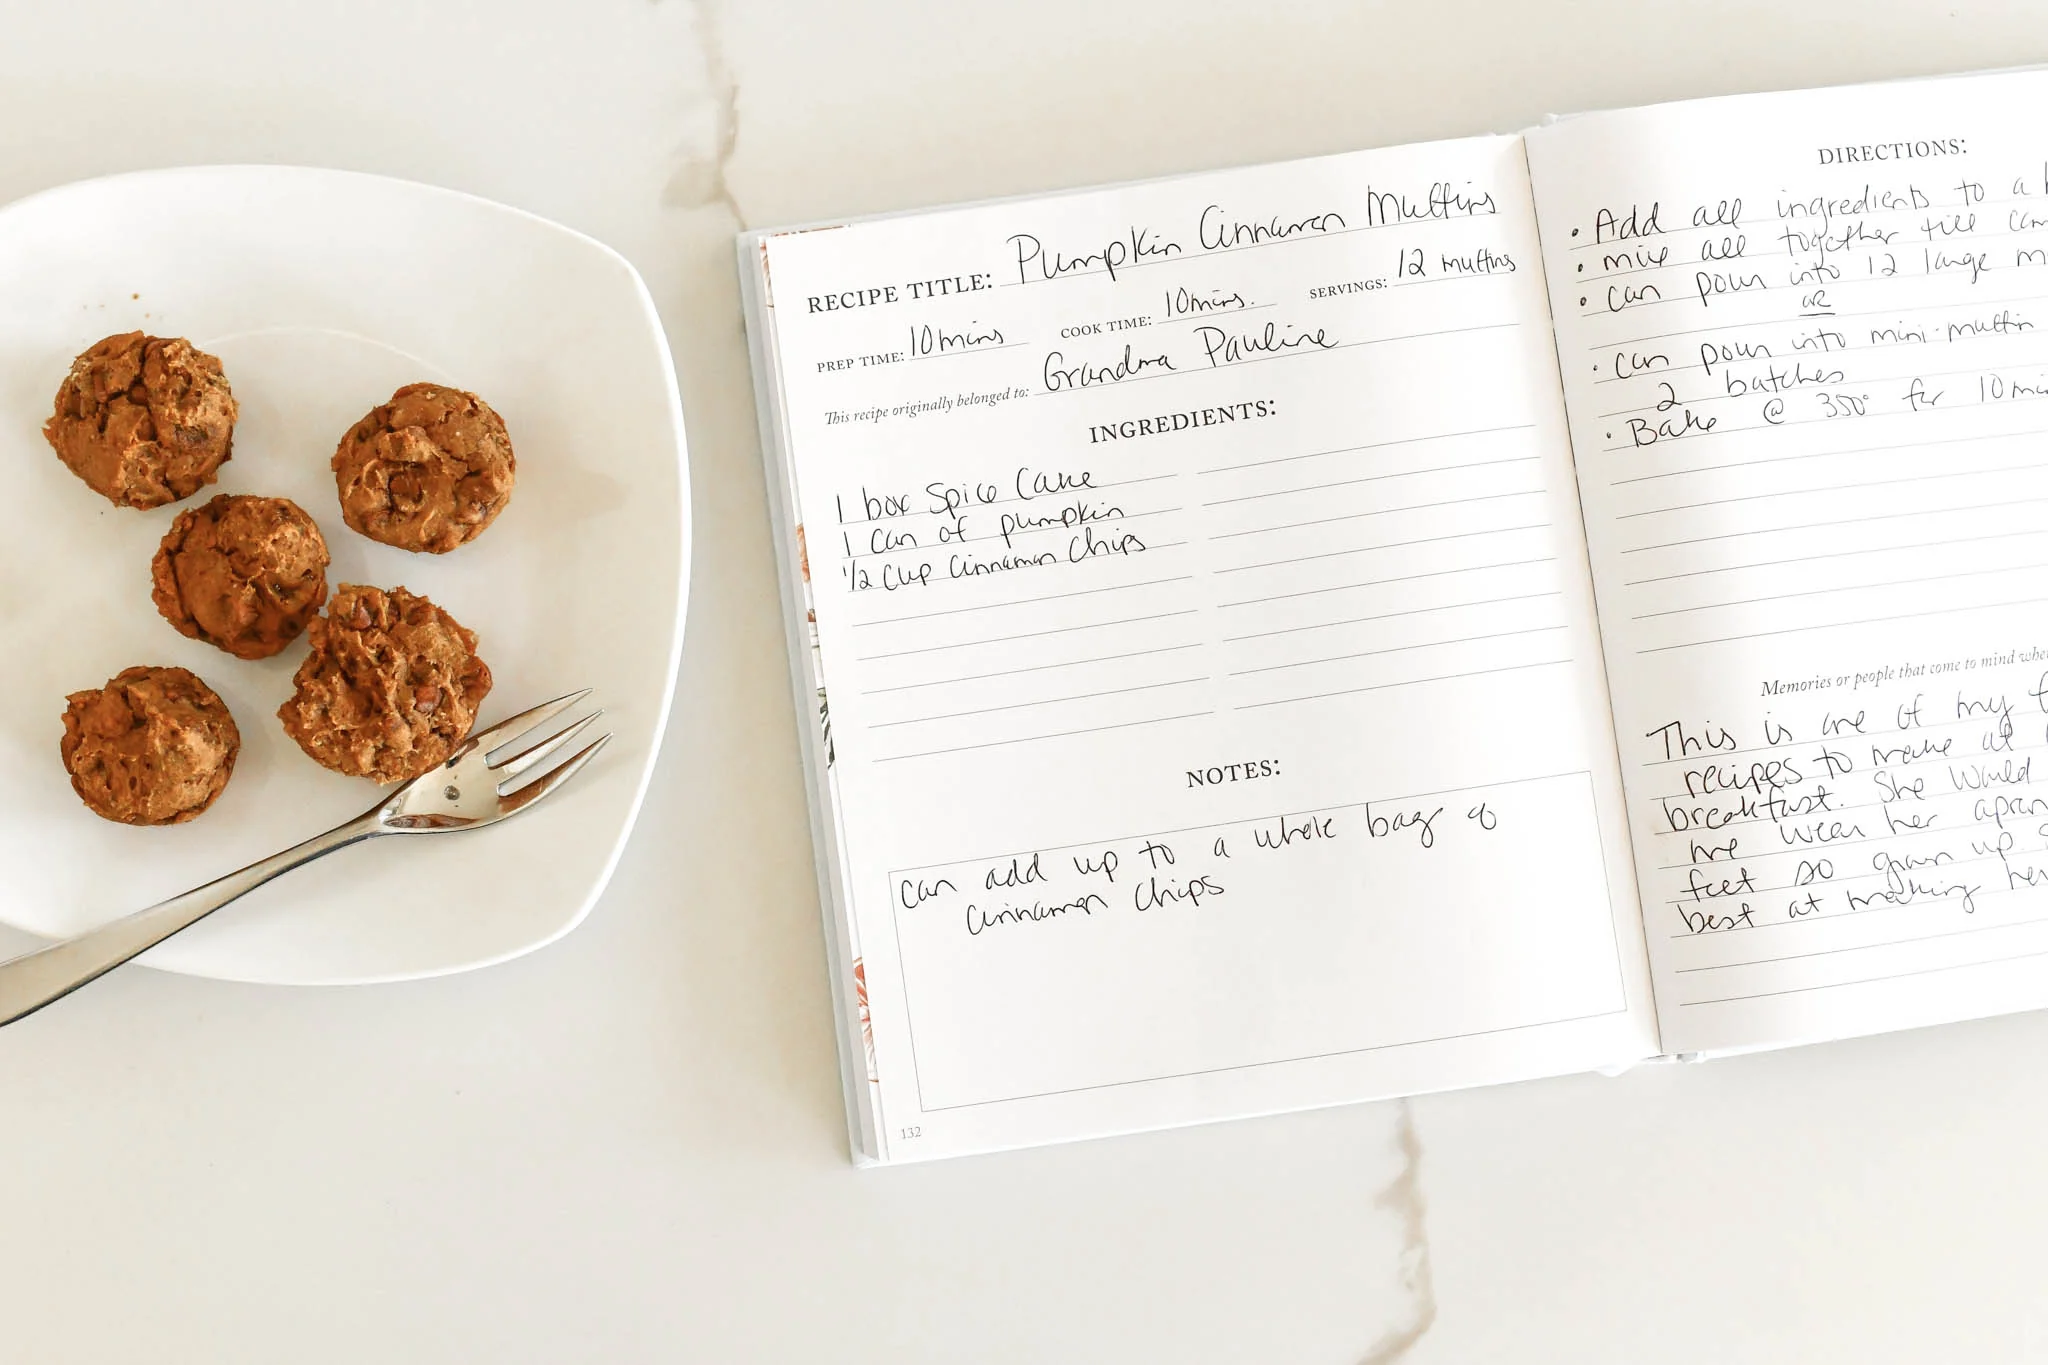 RECIPE TITLE: Pumpkin Cinnamon Muffins
PREP TIME: 10 mins COOK TIME: 10 mins. SERVINGS: 12 muffins
This recipe originally belonged to: Grandma Pauline
INGREDIENTS:
1 box Spice Cake
1 can of pumpkin
1/2 cup Cinnamon Chips
NOTES:
can add up to a whole bag of
Cinnamon Chips
132
DIRECTIONS:
• Add all ingredients to a
• mix all together till
• can pour into 12 large
OR
• can pour into mini-muffin
2 batches
• Bake @ 350° for 10
Memories or people that come to mind
This is one of my
recipes to make at
breakfast. She would
me wear her
feet so grown up.
best at making